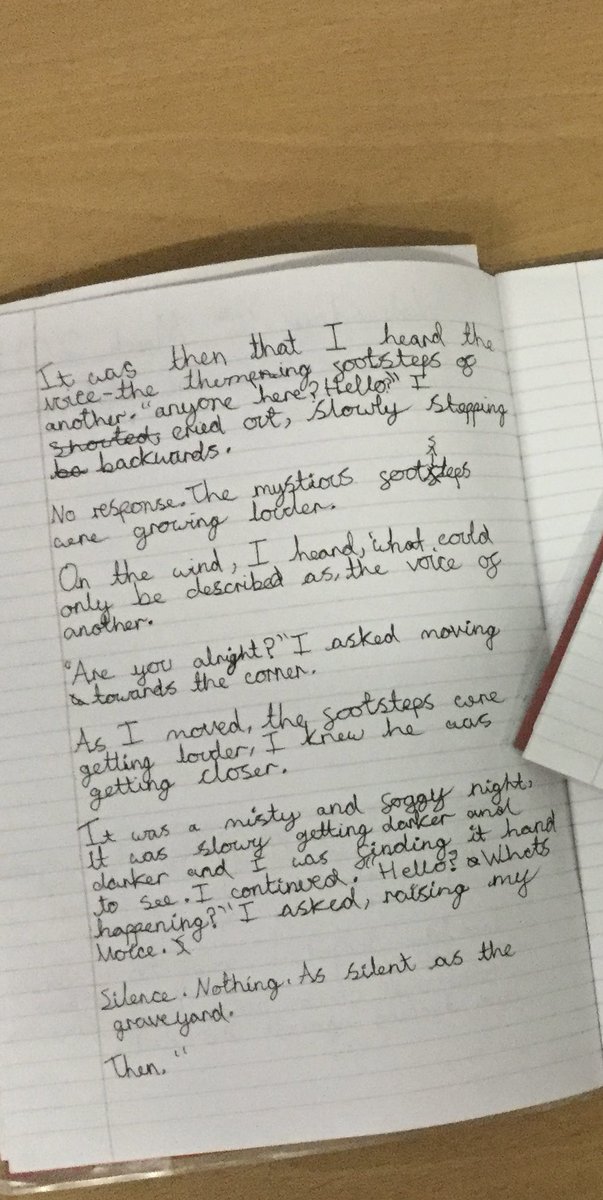 It was then that I heard the
voice-the themening footsteps of
another. "anyone here? Hello?" I
shouted, cried out, slowly stepping
ba backwards.
No response. The mystious footsteps
were growing louder.
On the wind, I heard, what could
only be described as, the voice of
another.
"Are you alright?" I asked moving
towards the corner.
As I moved, the footsteps were
getting louder, I knew he was
getting closer.
It was a misty and foggy night,
it was slowy getting darker and
darker and I was finding it hard
to see. I continued. "Hello? Whats
happening?" I asked, raising my
voice.
Silence. Nothing. As silent as the
graveyard.
Then. "